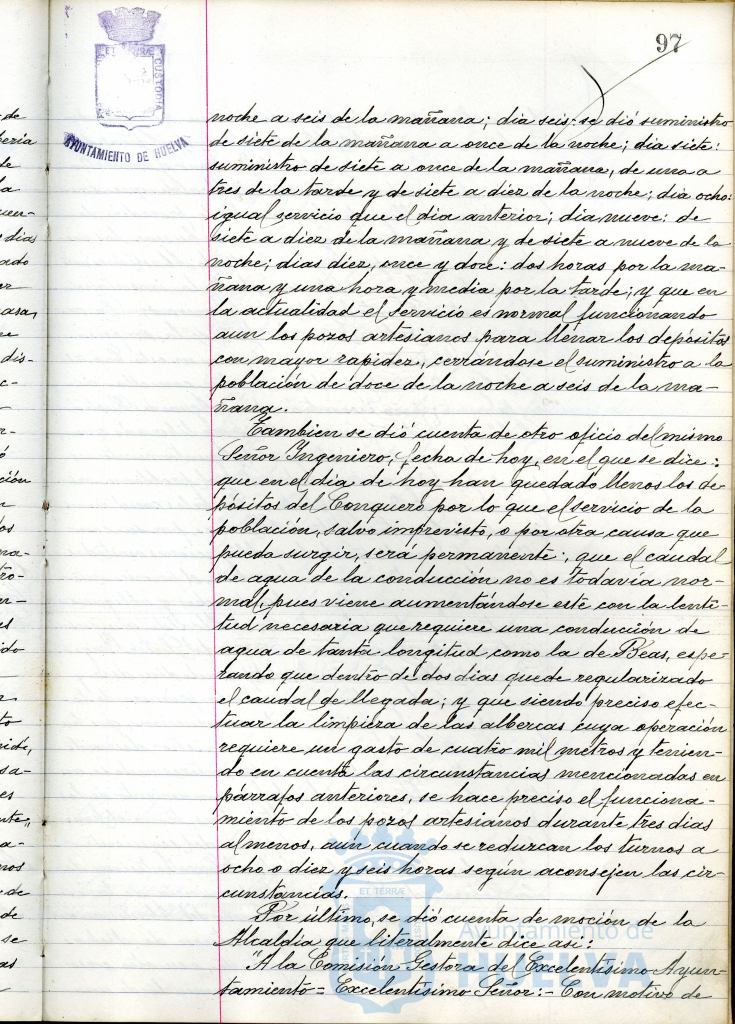 97
ET TERRÆ CUSTODIA
AYUNTAMIENTO DE HUELVA
noche a seis de la mañana; dia seis: se dió suministro
de siete de la mañana a once de la noche; dia siete:
suministro de siete a once de la mañana, de una a
tres de la tarde y de siete a diez de la noche; dia ocho:
igual servicio que el dia anterior; dia nueve: de
siete a diez de la mañana y de siete a nueve de la
noche; dias diez, once y doce: dos horas por la ma-
ñana y una hora y media por la tarde; y que en
la actualidad el servicio es normal funcionando
aun los pozos artesianos para llenar los depósitos
con mayor rapidez, cerrándose el suministro a la
población de doce de la noche a seis de la ma-
ñana.
Tambien se dió cuenta de otro oficio del mismo
Señor Ingeniero, fecha de hoy, en el que se dice:
que en el día de hoy han quedado llenos los de-
pósitos del Conquero por lo que el servicio de la
población, salvo imprevisto, o por otra causa que
pueda surgir, será permanente:, que el caudal
de agua de la conducción no es todavía nor-
mal, pues viene aumentándose este con la lenti-
tud necesaria que requiere una conducción de
agua de tanta longitud como la de Beas, espe-
rando que dentro de dos dias quede regularizado
el caudal de llegada; y que siendo preciso efec-
tuar la limpieza de las albercas cuya operación
requiere un gasto de cuatro mil metros y tenien-
do en cuenta las circunstancias mencionadas en
párrafos anteriores, se hace preciso el funciona-
miento de los pozos artesianos durante tres dias
al menos, aún cuando se reduzcan los turnos a
ocho o diez y seis horas según aconsejen las cir-
cunstancias.
Por último, se dió cuenta de moción de la
Alcaldía que literalmente dice asi:
"A la Comisión Gestora del Excelentísimo Ayun-
tamiento = Excelentísimo Señor:- Con motivo de
ET TERRÆ
Ayuntamiento de
HUELVA